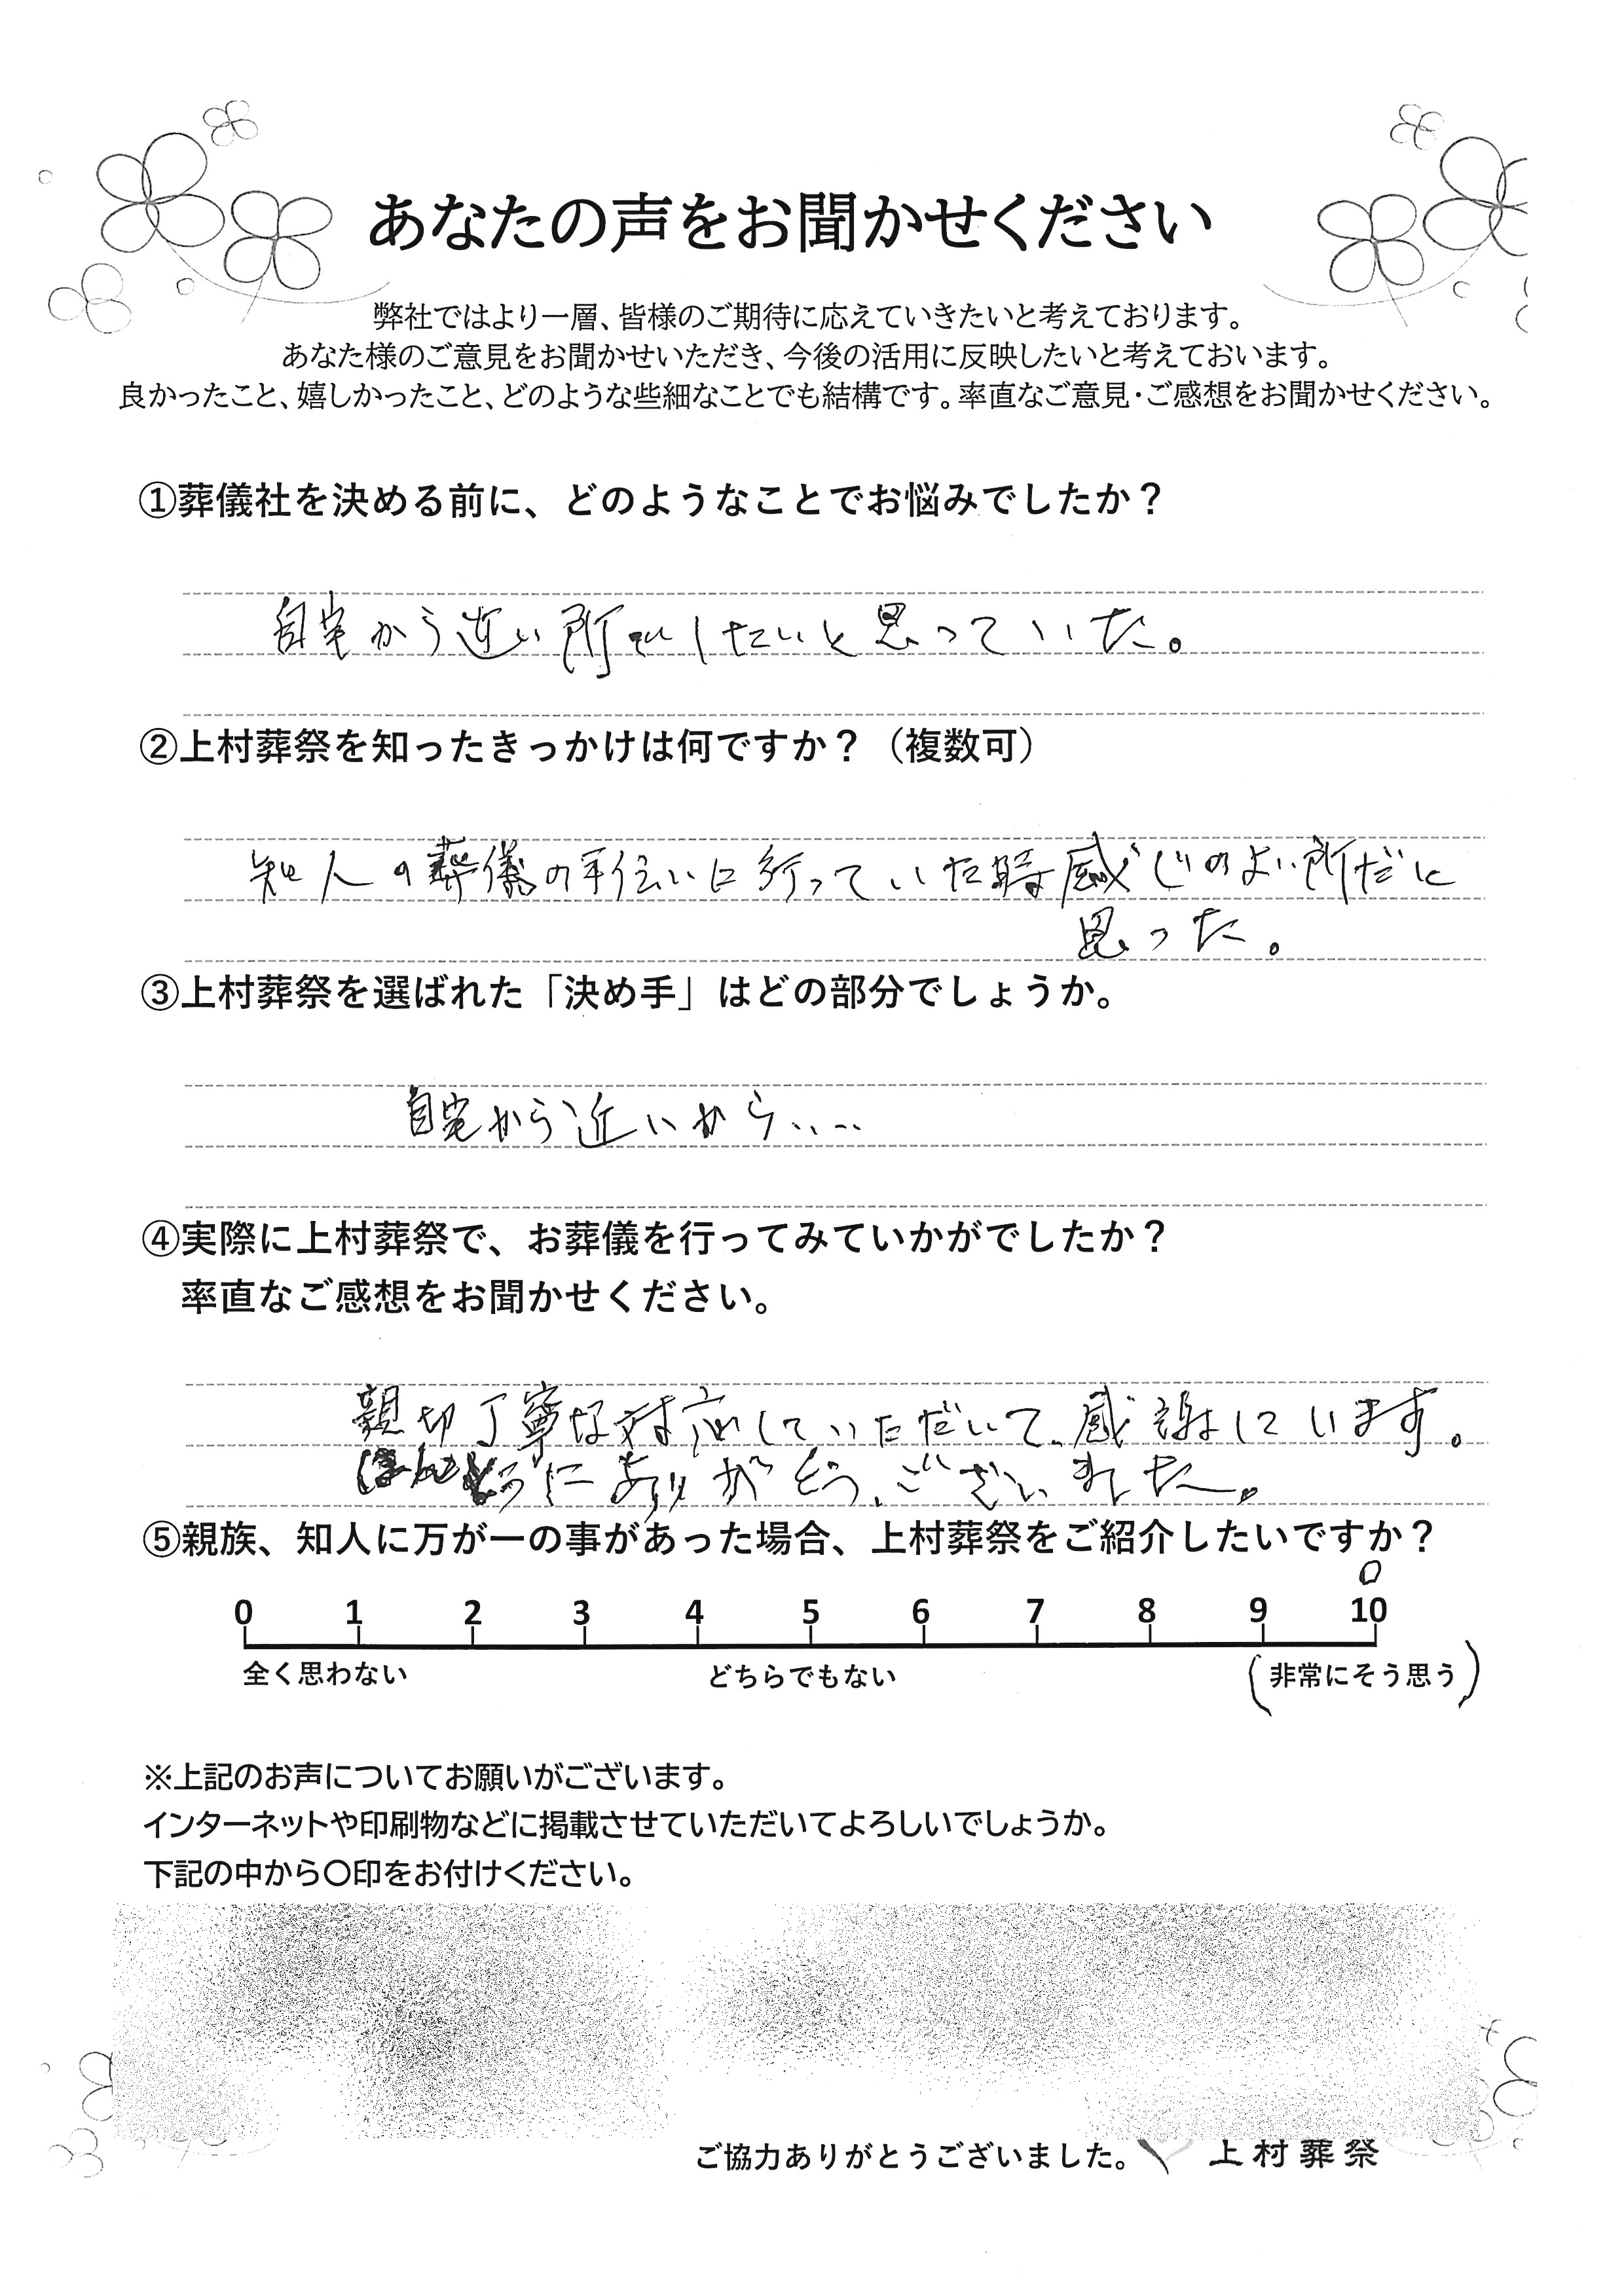 あなたの声をお聞かせください
弊社ではより一層、皆様のご期待に応えていきたいと考えております。
あなた様のご意見をお聞かせいただき、今後の活用に反映したいと考えておいます。
良かったこと、嬉しかったこと、どのような些細なことでも結構です。率直なご意見・ご感想をお聞かせください。
①葬儀社を決める前に、どのようなことでお悩みでしたか？
自宅から近い所でしたいと思っていた。
②上村葬祭を知ったきっかけは何ですか？（複数可）
知人の葬儀の手伝いに行っていた時感じのよい所だと
思った。
③上村葬祭を選ばれた「決め手」はどの部分でしょうか。
自宅から近いから....
④実際に上村葬祭で、お葬儀を行ってみていかがでしたか？
率直なご感想をお聞かせください。
親切丁寧な対応していただいて、感謝しています。
ほんとうにありがとう、ございました。
⑤親族、知人に万が一の事があった場合、上村葬祭をご紹介したいですか？
0 1 2 3 4 5 6 7 8 9 10
全く思わない どちらでもない (非常にそう思う)
※上記のお声についてお願いがございます。
インターネットや印刷物などに掲載させていただいてよろしいでしょうか。
下記の中から〇印をお付けください。
ご協力ありがとうございました。 上村葬祭